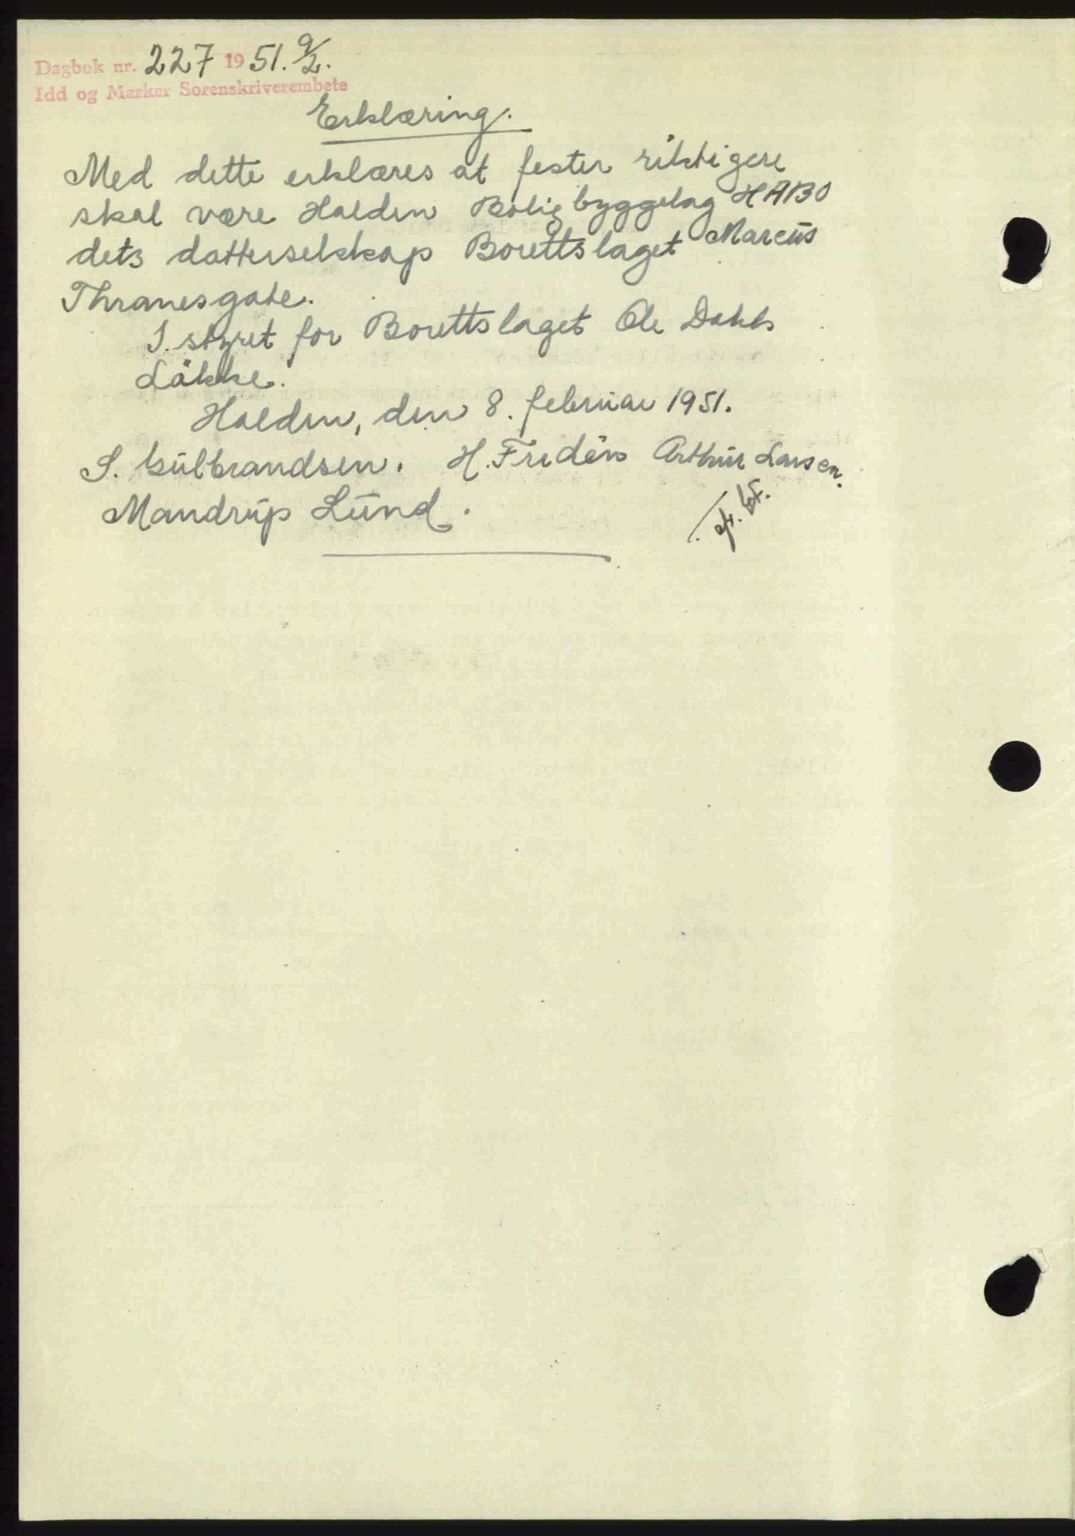 Dagbok nr. 227 1951. 9/2.
Idd og Marker Sorenskriverembete
Erklæring.
Med dette erklæres at fester riktigere
skal være Halden Boligbyggelag HABO
dets datterselskap Borettslaget Marcus
Thranesgate.
I. styret for Borettslaget Ole Dahls
Løkke.
Halden, den 8. februar 1951.
S. Gulbrandsen. H. Fridén Arthur Larsen.
Mandrup Lund.